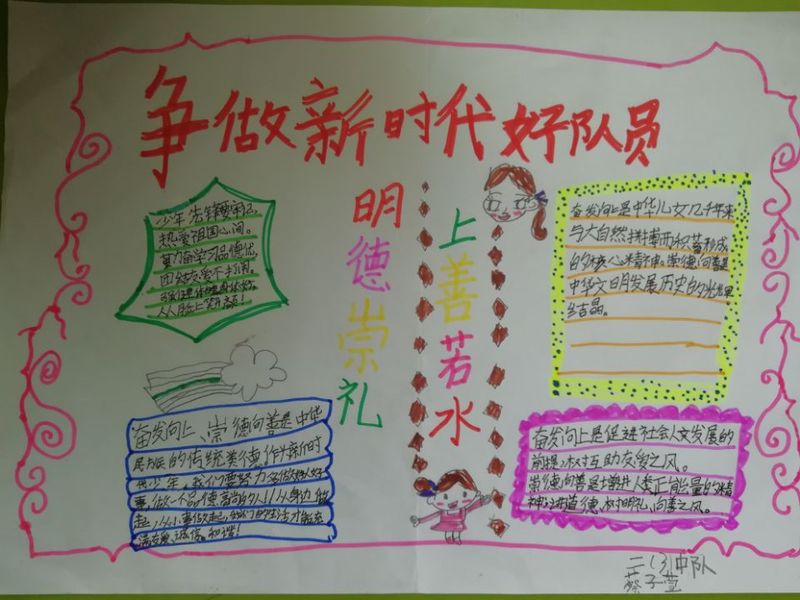 争做新时代好队员
明德崇礼
上善若水
少年先锋要牢记,
热爱祖国心间。
努力奋学习品德优,
团结友爱不掉队,
人人脸上笑开颜!
奋发向上、崇德向善是中华
民族的传统美德,作为新时
代少年,我们要努力多做好人好
事,做一个品德高尚的人,从身边做
起,从小事做起,我们的生活才能充
满友爱、诚信。和谐!
奋发向上是中华儿女几千年来
与大自然拼搏而积蓄形成
的核心精神。崇德向善是
中华文明发展历史的光辉
结晶。
奋发向上是促进社会人文发展的
前提,树互助友爱之风。
崇德向善是增进人类正能量的精
神,讲道德,树明礼,向善之风。
三(3)中队
蔡子萱